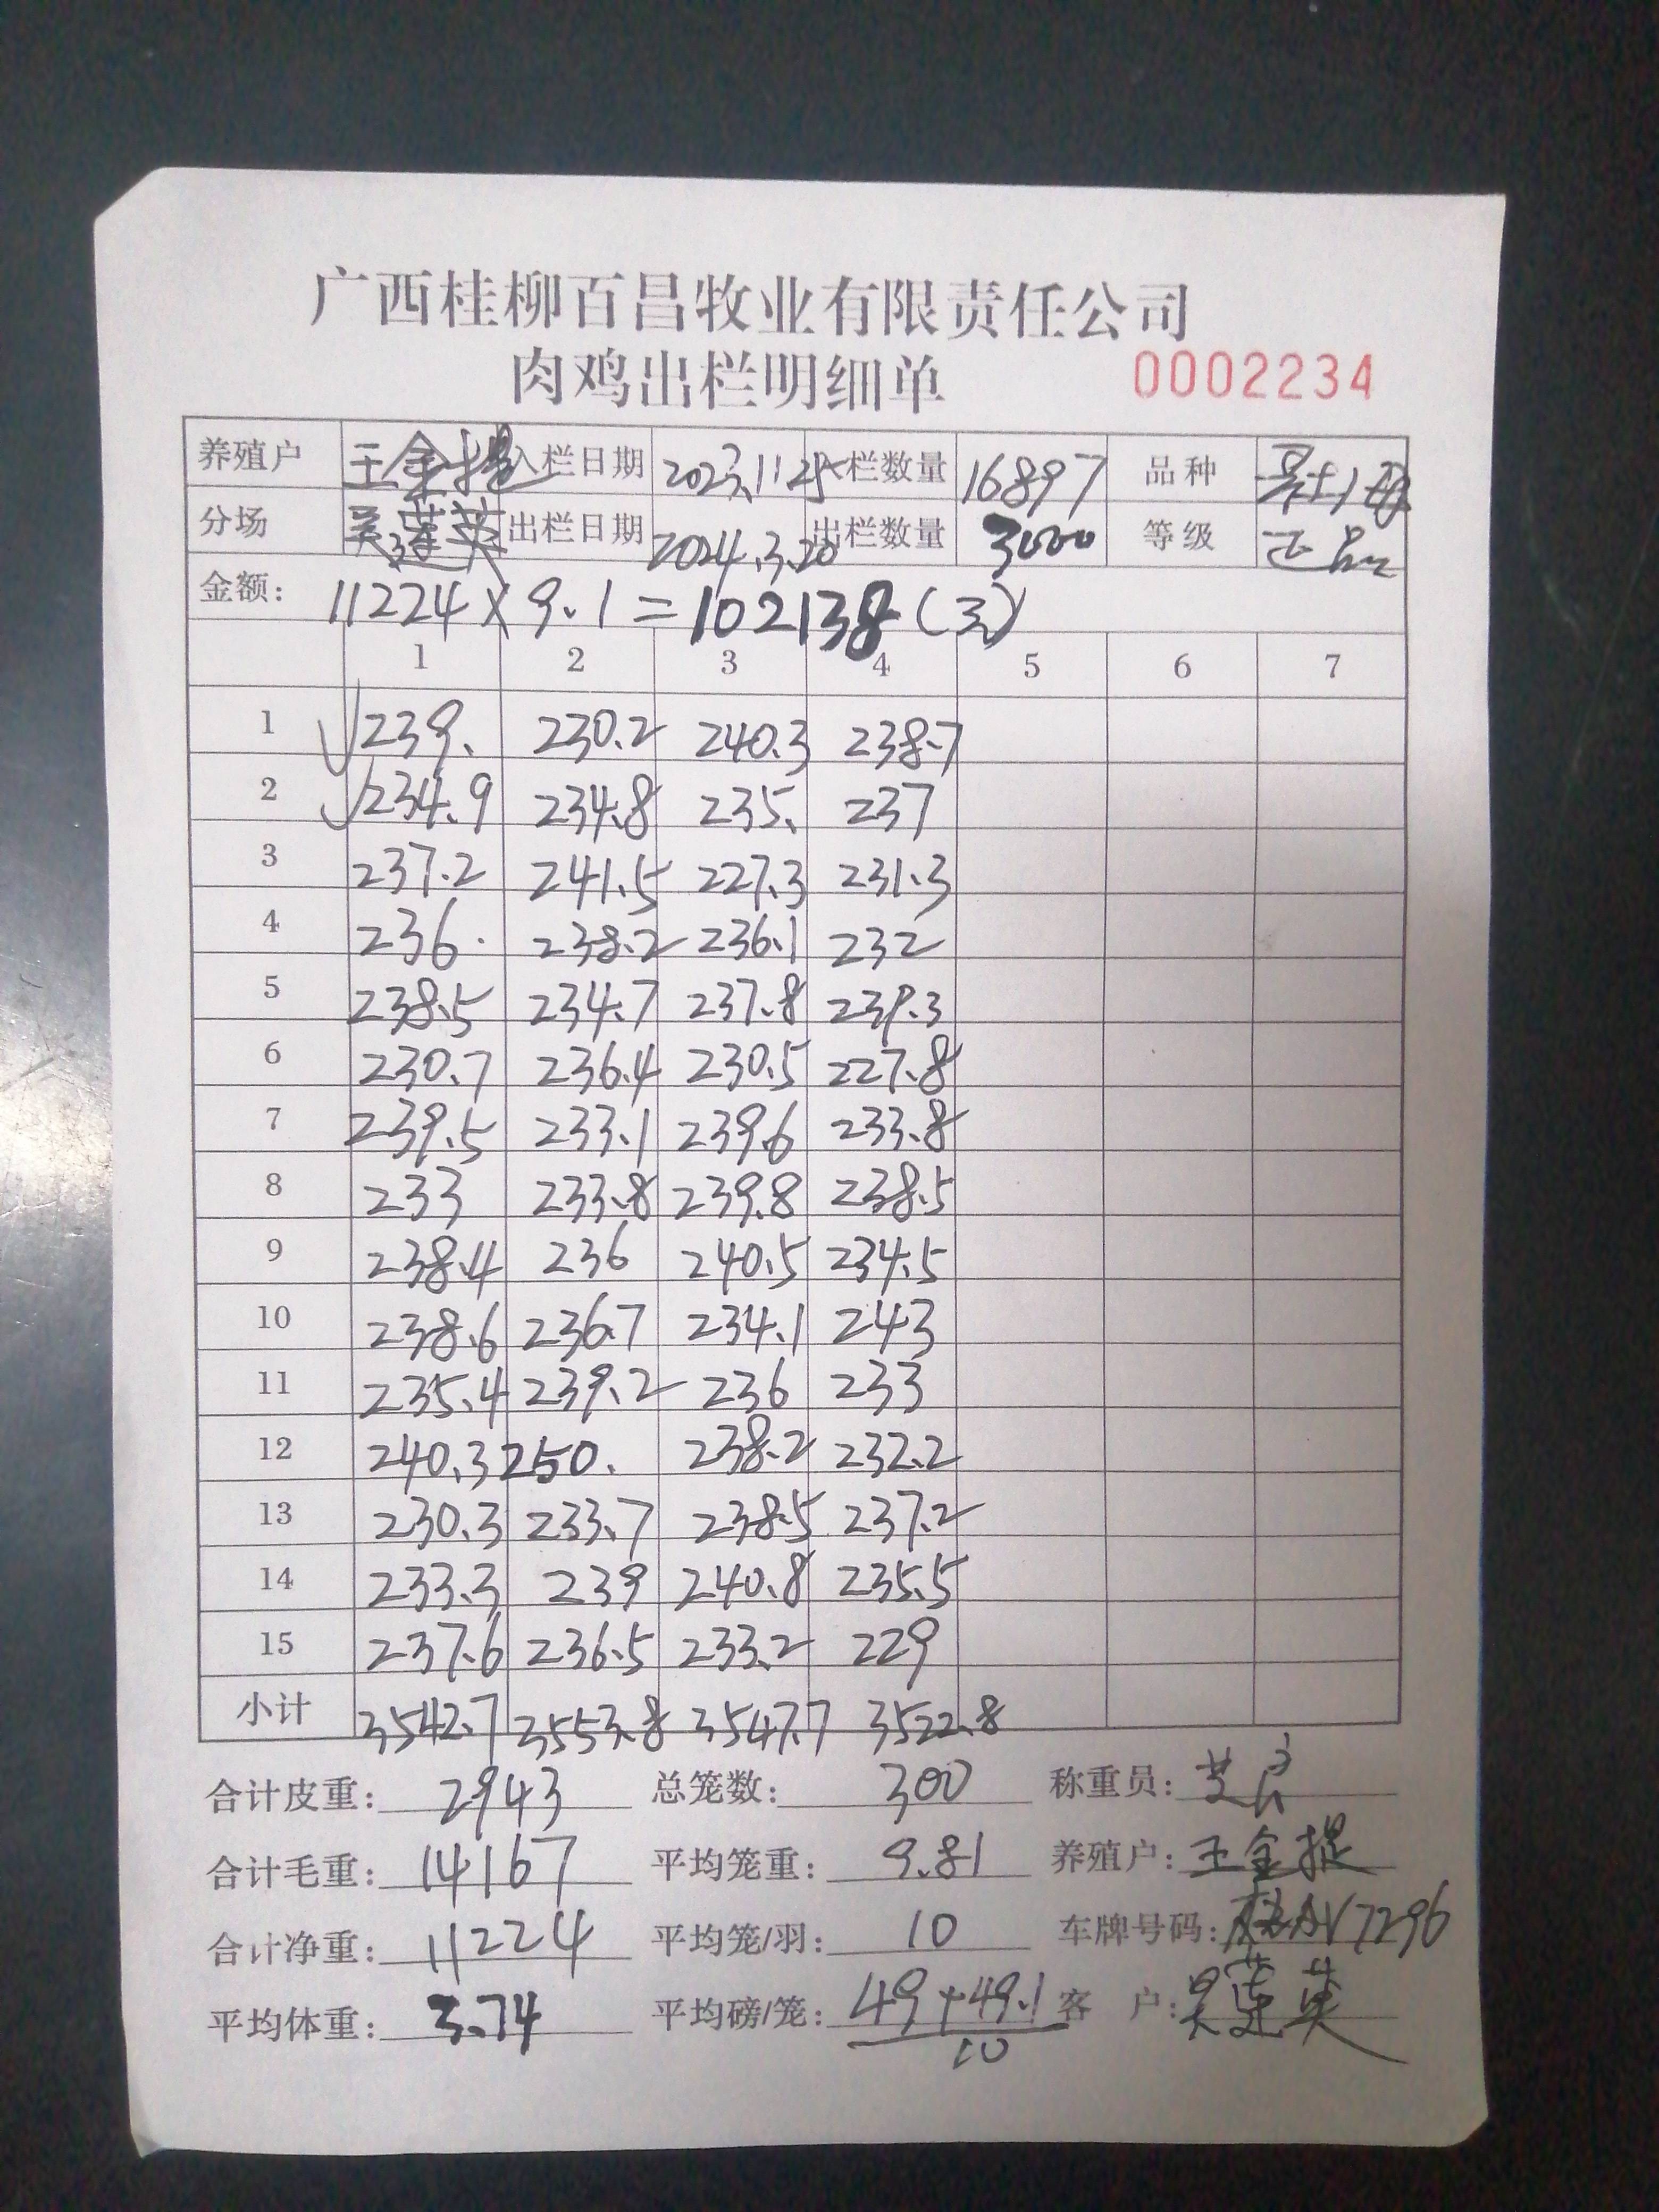 广西桂柳百昌牧业有限责任公司
肉鸡出栏明细单 0002234
养殖户 王金提 入栏日期 2023.11.25 入栏数量 16897 品种
分场 吴莲英 出栏日期 2024.3.20 出栏数量 3000 等级 正品
金额: 11224×9.1=102138(元)
1 2 3 4 5 6 7
1 √239. 230.2 240.3 238.7
2 √234.9 234.8 235. 237
3 237.2 241.5 227.3 231.3
4 236. 238.2 236.1 232
5 238.5 234.7 237.8 239.3
6 230.7 236.4 230.5 227.8
7 239.5 233.1 239.6 233.8
8 233 233.8 239.8 238.5
9 238.4 236 240.5 234.5
10 238.6 236.7 234.1 243
11 235.4 239.2 236 233
12 240.3 250. 238.2 232.2
13 230.3 233.7 238.5 237.2
14 233.3 239 240.8 235.5
15 237.6 236.5 233.2 229
小计 3542.7 3553.8 3547.7 3522.8
合计皮重: 2943 总笼数: 300 称重员:
合计毛重: 14167 平均笼重: 9.81 养殖户: 王金提
合计净重: 11224 平均笼/羽: 10 车牌号码: 7296
平均体重: 3.74 平均磅/笼: 49+49.1 客户: 吴莲英
10